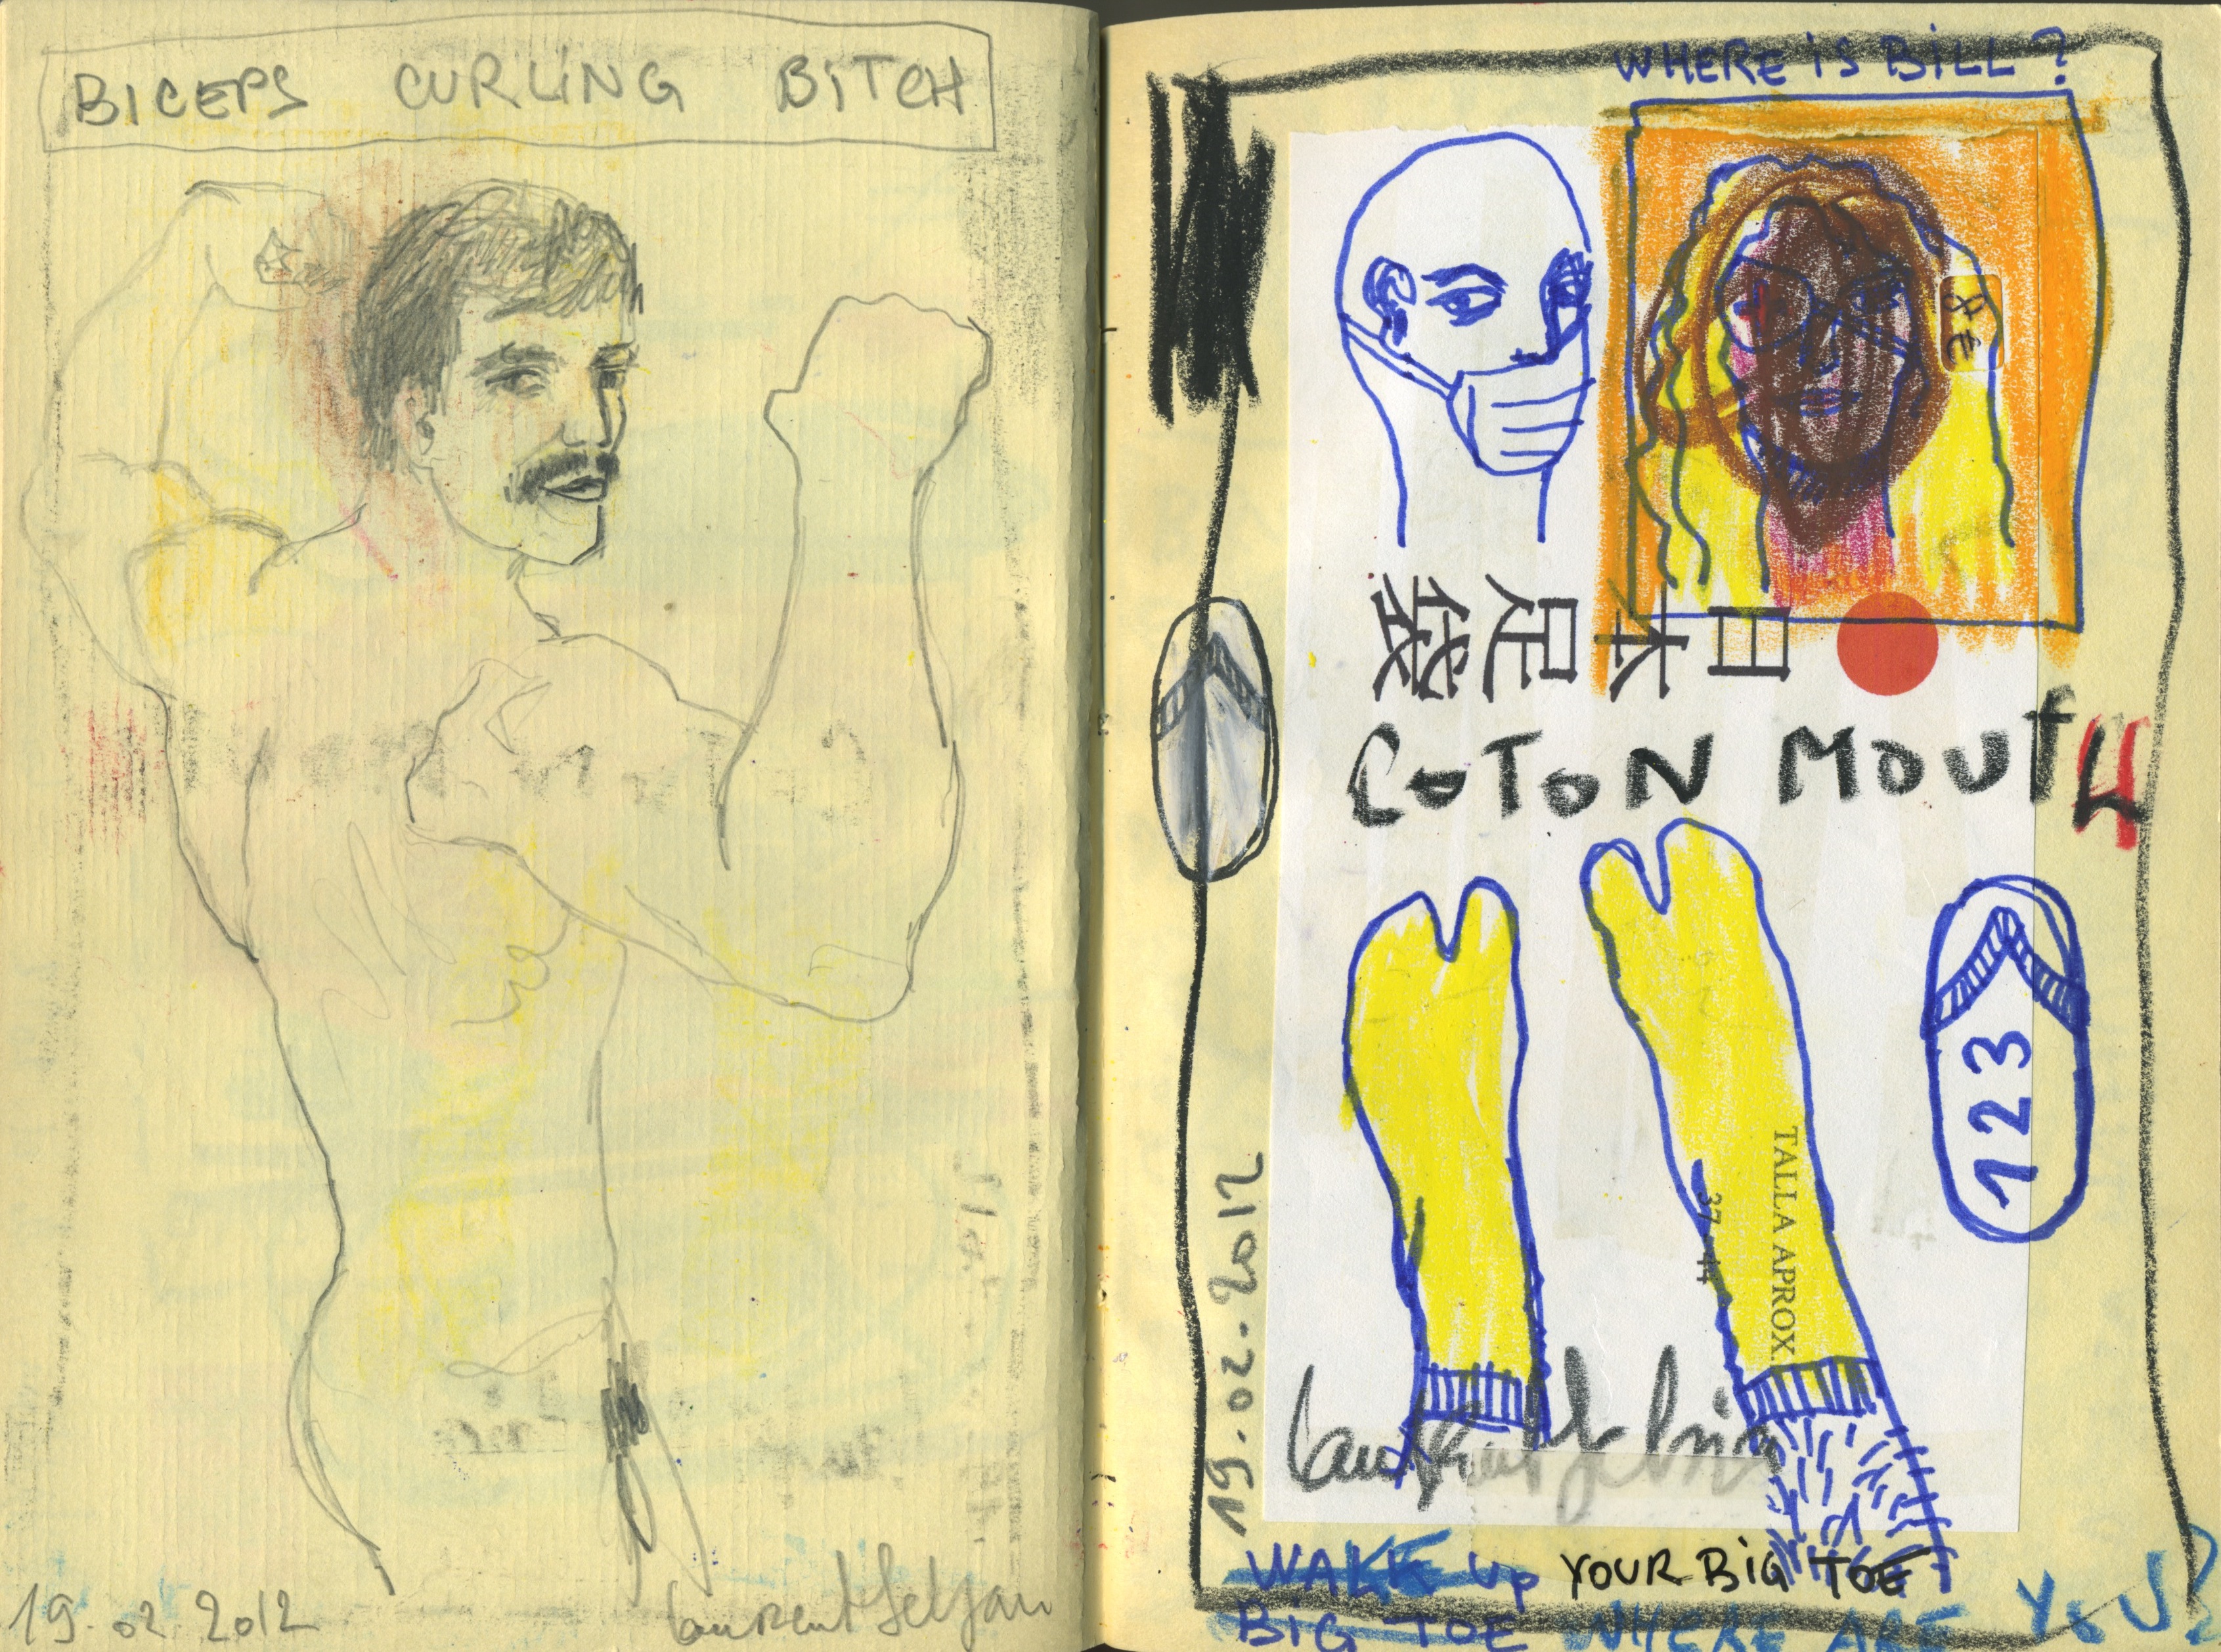 BICEPS CURLING BITCH
19.02.2012
WHERE IS BILL?
日本足袋
COTON MOUTH
123
TALLA APROX.
37-44
19.02.2012
WAKE UP YOUR BIG TOE
BIG TOE WHERE ARE YOU?